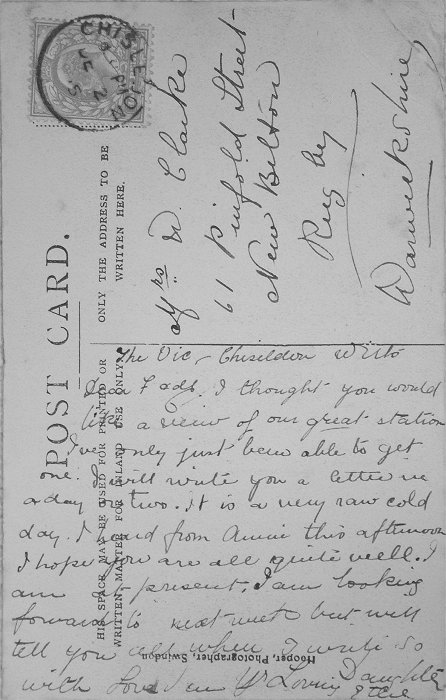 POST CARD.
THIS SPACE MAY BE USED FOR PRINTED OR
WRITTEN MATTER FOR INLAND USE ONLY.
ONLY THE ADDRESS TO BE
WRITTEN HERE.
CHISLEDON
Mrs W. Clarke
61 Pinfold Street
New Bilton
Rugby
Warwickshire
The Vic - Chiseldon Wilts
I thought you would
like a view of our great station
I've only just been able to get
one. I will write you a letter in
a day or two. It is a very raw cold
day. I heard from Annie this afternoon
I hope you are all quite well. I
am at present. I am looking
forward to next week but will
tell you all when I write so
with Love I am Yr Loving Daughter
Hooper, Photographer, Swindon